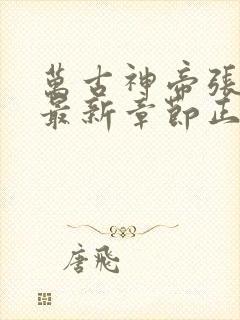 萬古神帝張
最新章節正
唐飛